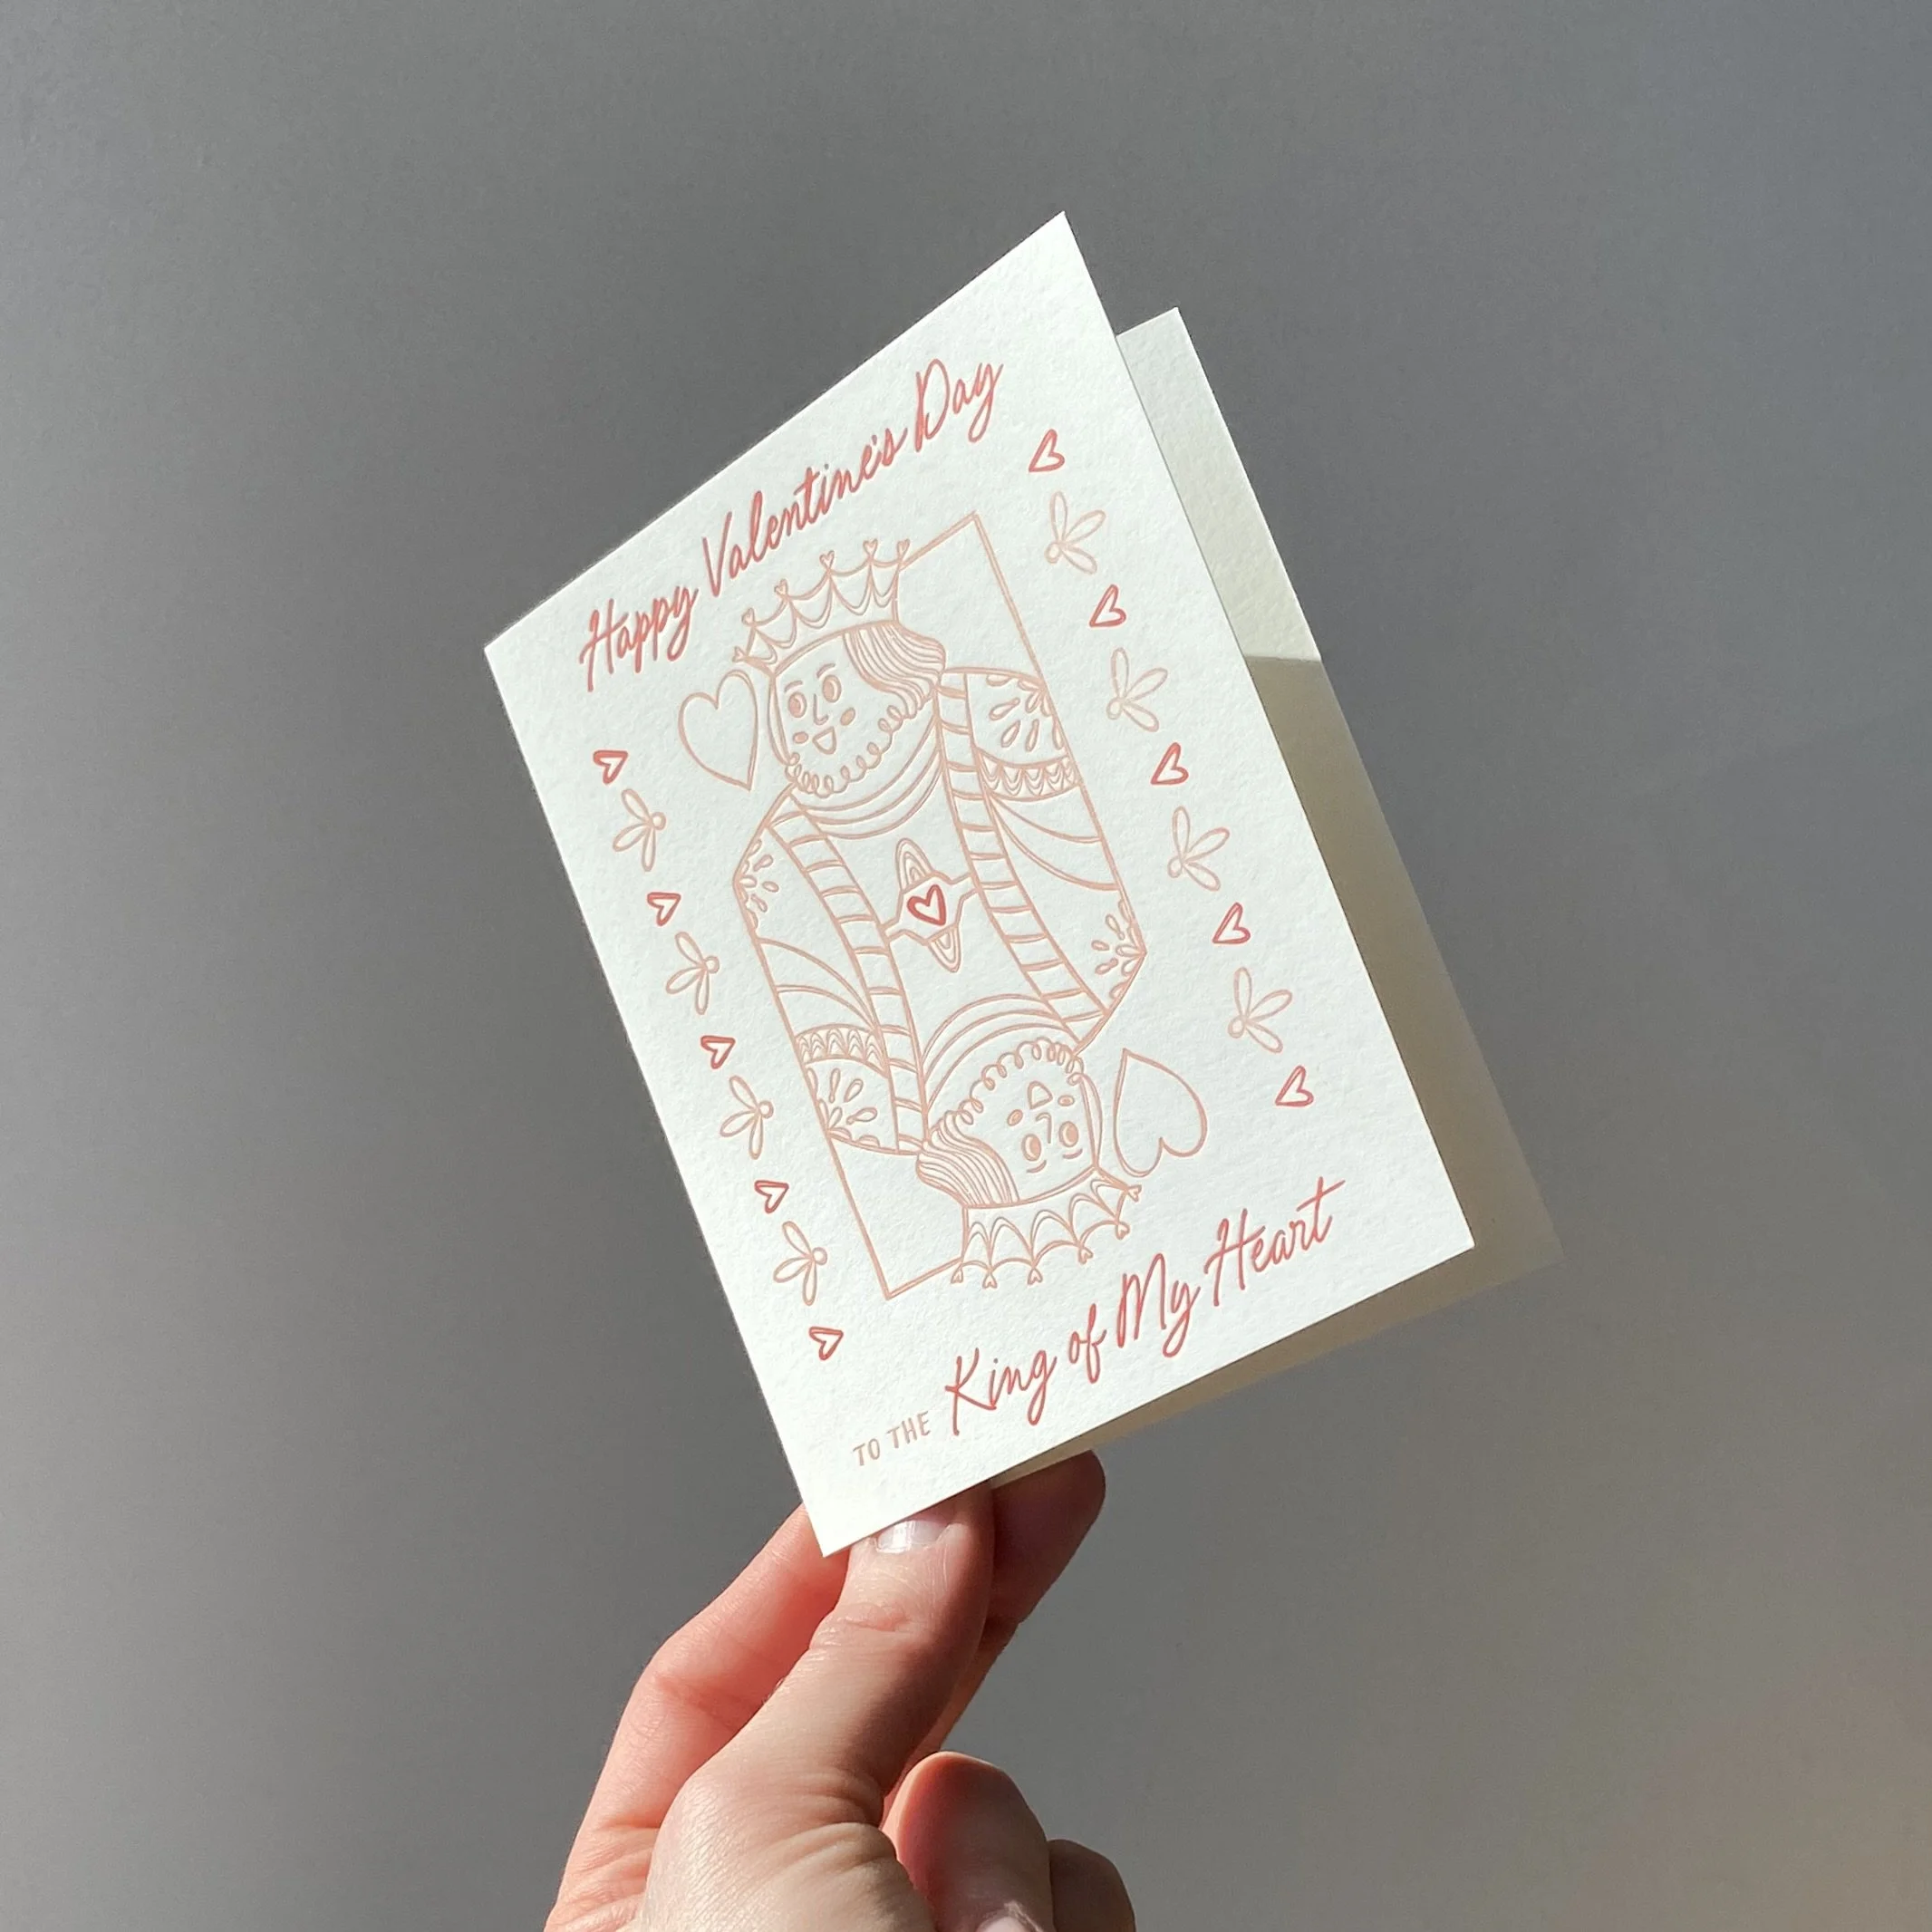 Happy Valentine's Day
TO THE King of My Heart